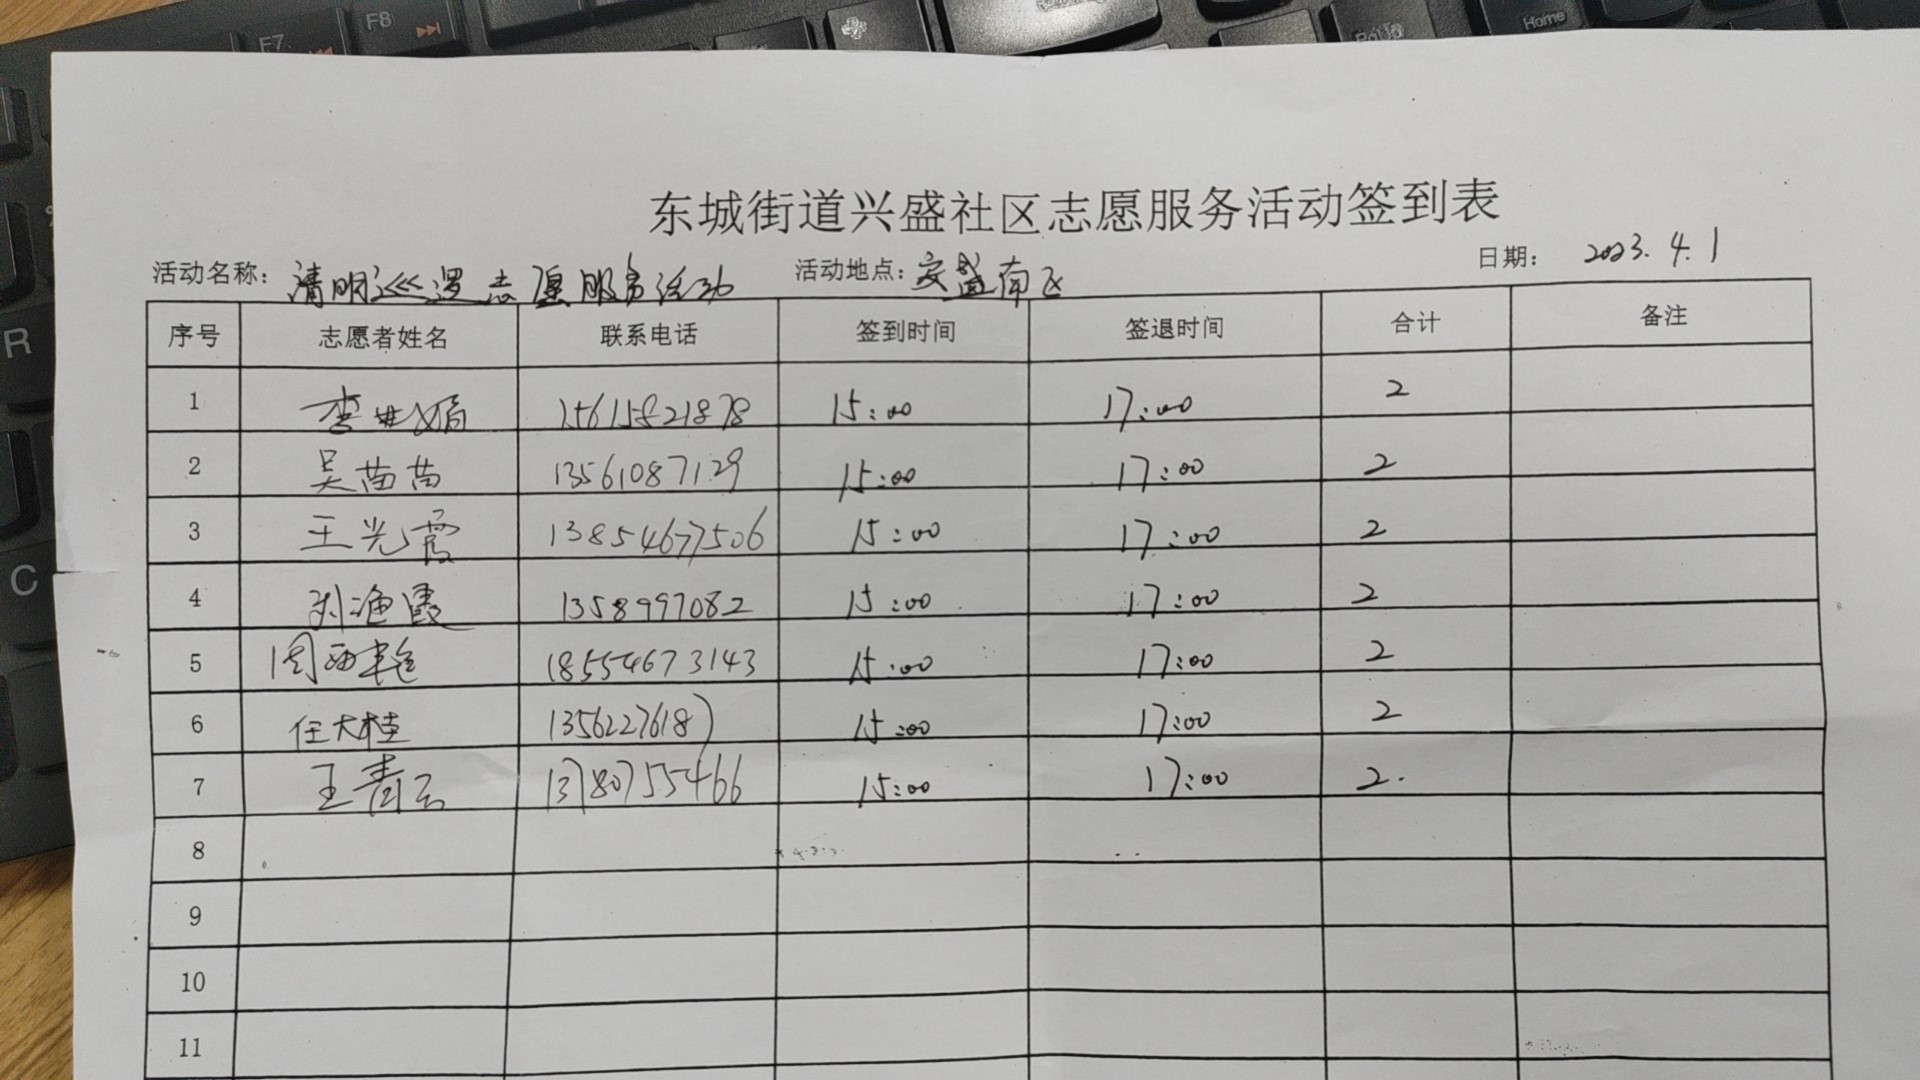 F7 F8 Home
R
C
东城街道兴盛社区志愿服务活动签到表
活动名称：清明巡逻志愿服务活动 活动地点：安盛南区 日期：2023.4.1
序号 志愿者姓名 联系电话 签到时间 签退时间 合计 备注
1 李 娟 15615821878 15:00 17:00 2
2 吴苗苗 13561087129 15:00 17:00 2
3 王光霞 13854677506 15:00 17:00 2
4 刘渔霞 1358997082 15:00 17:00 2
5 周 艳 18554673143 15:00 17:00 2
6 任大桂 13562276187 15:00 17:00 2
7 王青云 13780755466 15:00 17:00 2.
8
9
10
11